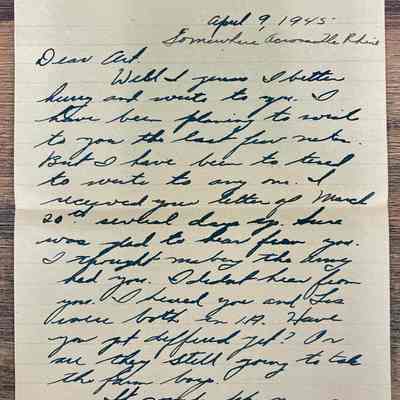 April 9, 1945
Somewhere Across the Rhine
Dear Art.
Well I guess I better
hurry and write to you. I
have been planing to write
to you the last few nites.
But I have been to tired
to write to any one. I
received your letter of March
20th several days ago. Sure
was glad to hear from you.
I thought maby the army
had you. I didnt hear from
you. I heard you and Les
were both in 1A. Have
you got deffered yet? Or
are they still going to take
the farm boys.